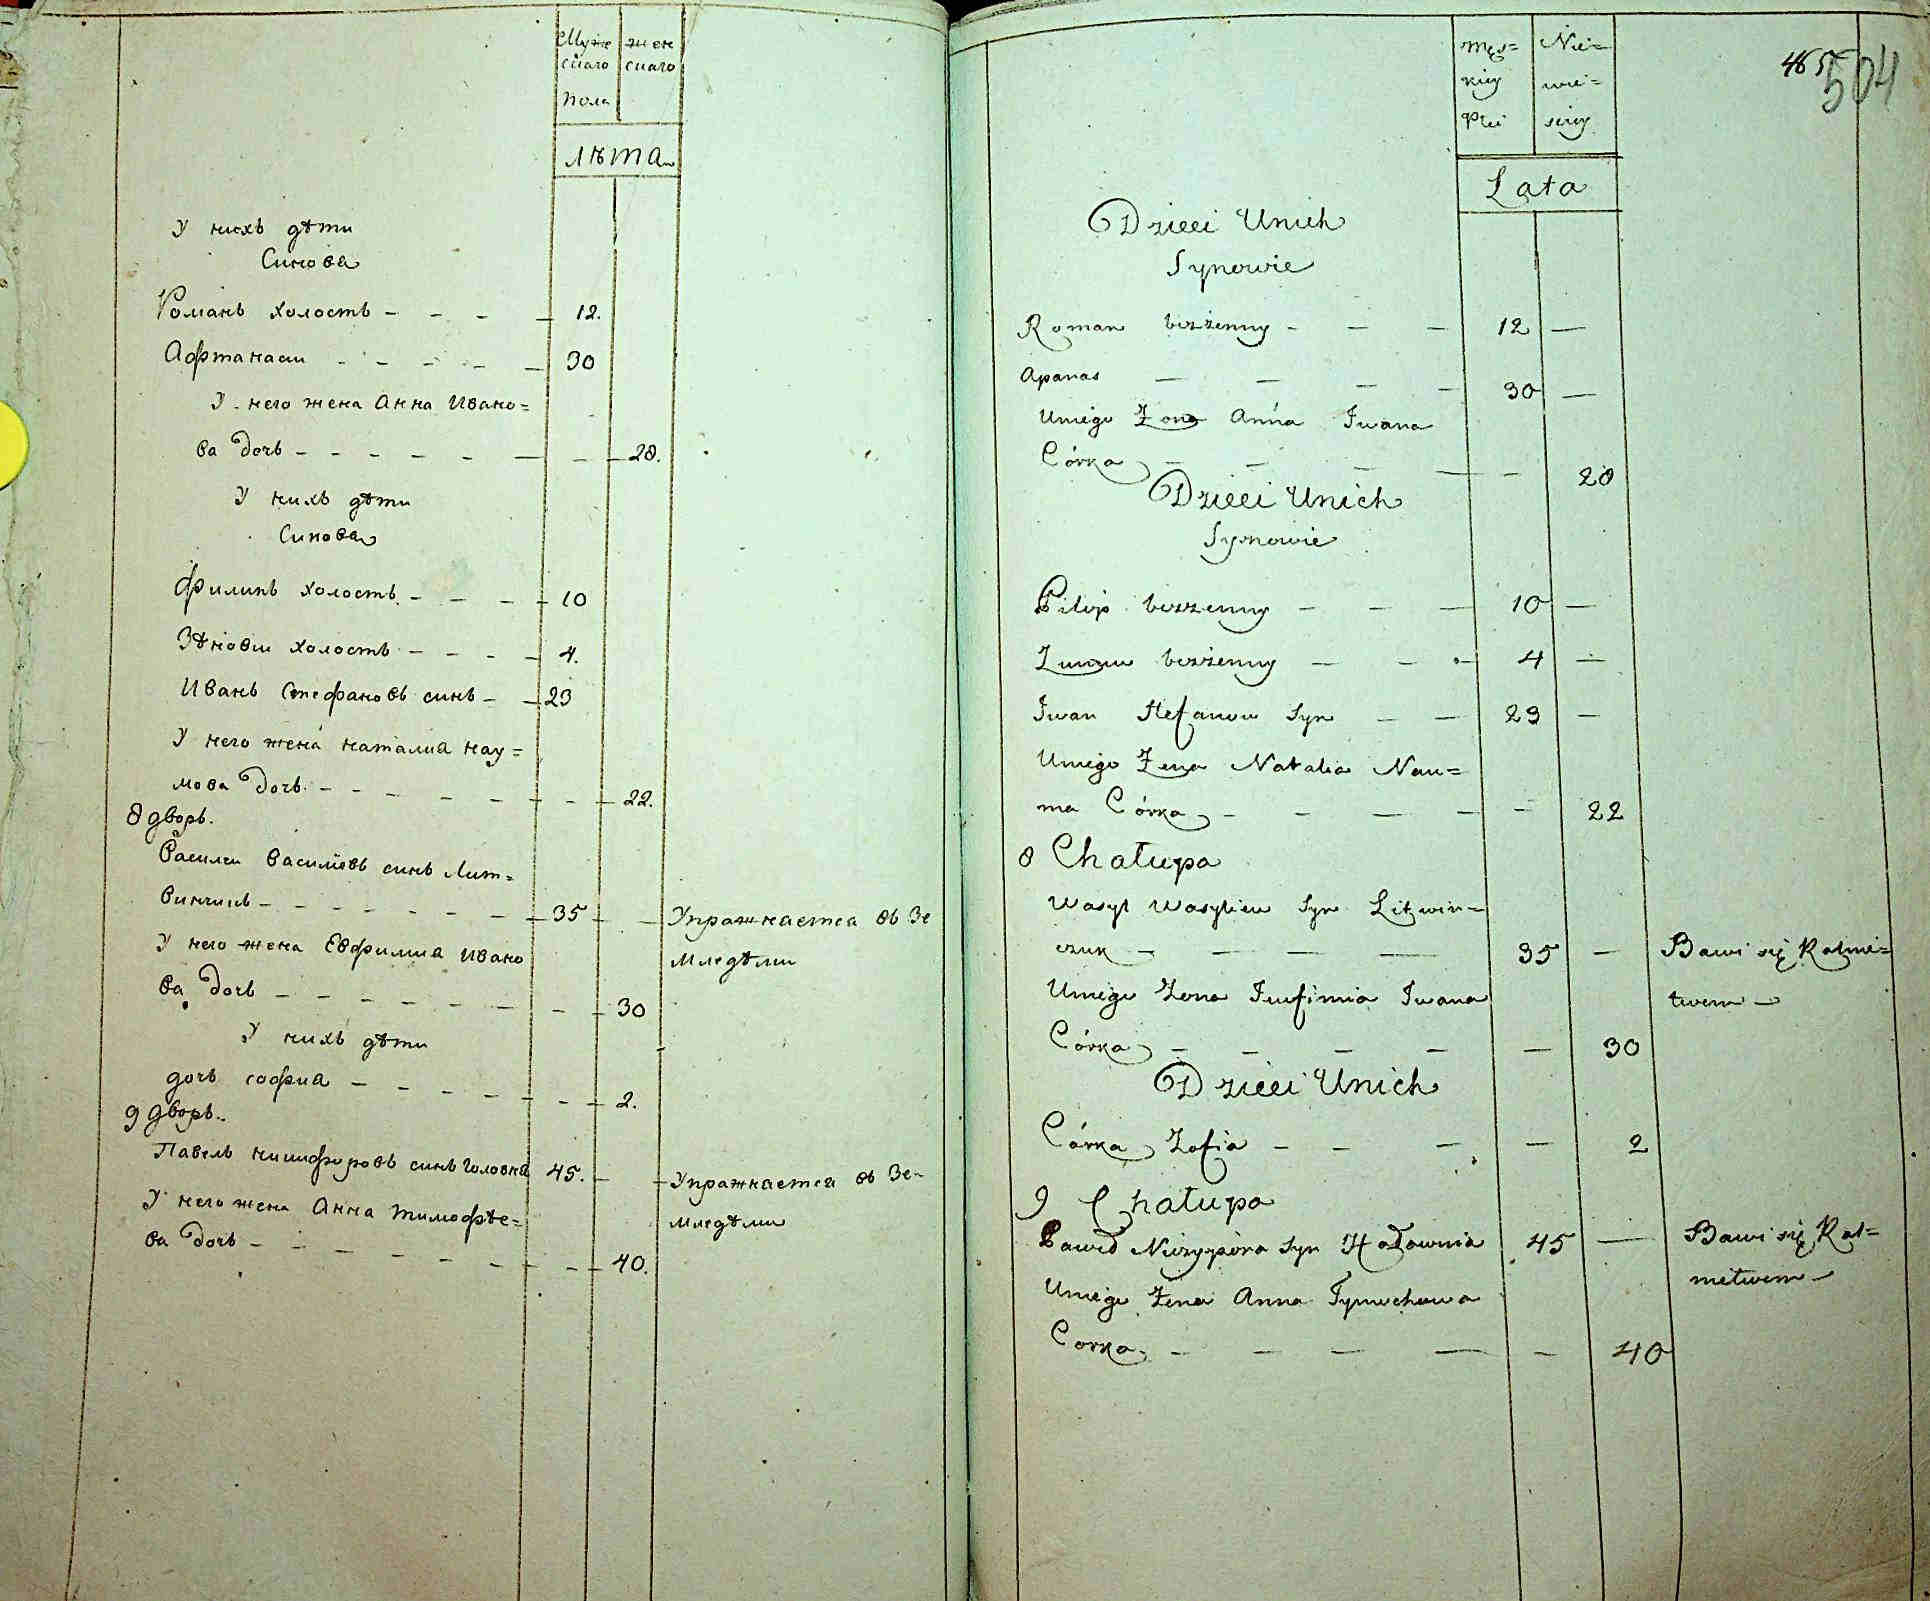 Муже жен
скаго скаго
пола
лѣта
У нихъ дѣти
Синова
Романъ холостъ - - - - 12.
Афтанасии - - - - - 30
У него жена Анна Ивано=
ва дочь - - - - - - - - 28.
У нихъ дѣти
Синова
Филипъ холостъ - - - - 10
Зѣновии холостъ - - - - 4.
Иванъ Стефановъ синъ - - 23
У него жена наталиа нау=
мова дочь - - - - - - - - 22.
8 дворъ.
Василеи василиевъ синъ Лит=
винчикъ - - - - - - - - 35 - - Упражнаетса въ Зе
У него жена Евфимиа Ивано
мледѣлии
ва дочь - - - - - - - - 30
У нихъ дѣти
дочь софиа - - - - - - - 2.
9 дворъ.
Павелъ никифоровъ синъ Головна 45. - - Упражнаетса въ Зе-
У него жена Анна тимофѣе=
мледѣлии
ва дочь - - - - - - - - 40.
męs= Nie=
kiey wie=
Płci sciey
465
504
Lata
Dzieci Unich
Synowie
Roman bezżenny - - - 12 -
Apanas - - - - 30 -
Uniego Żona Anna Iwana
Córka - - - - - 28
Dzieci Unich
Synowie
Pilip bezżenny - - - 10 -
bezżenny - - - 4 -
Iwan Stefanow Syn - - 23 -
Uniego Żena Natalia Nau=
ma Córka - - - - - 22
8 Chałupa
Wasyl Wasyliew Syn Litwin=
czuk - - - - 35 - Bawi się Rolni=
Uniego Zona Iewfimia Iwana
twem -
Córka - - - - - 30
Dzieci Unich
Córka Zofia - - - - 2
9 Chałupa
Paweł Niczypora Syn Hołownia 45 - Bawi się Rol=
nictwem -
Uniego Żena Anna Tymochowa
Corka - - - - - 40